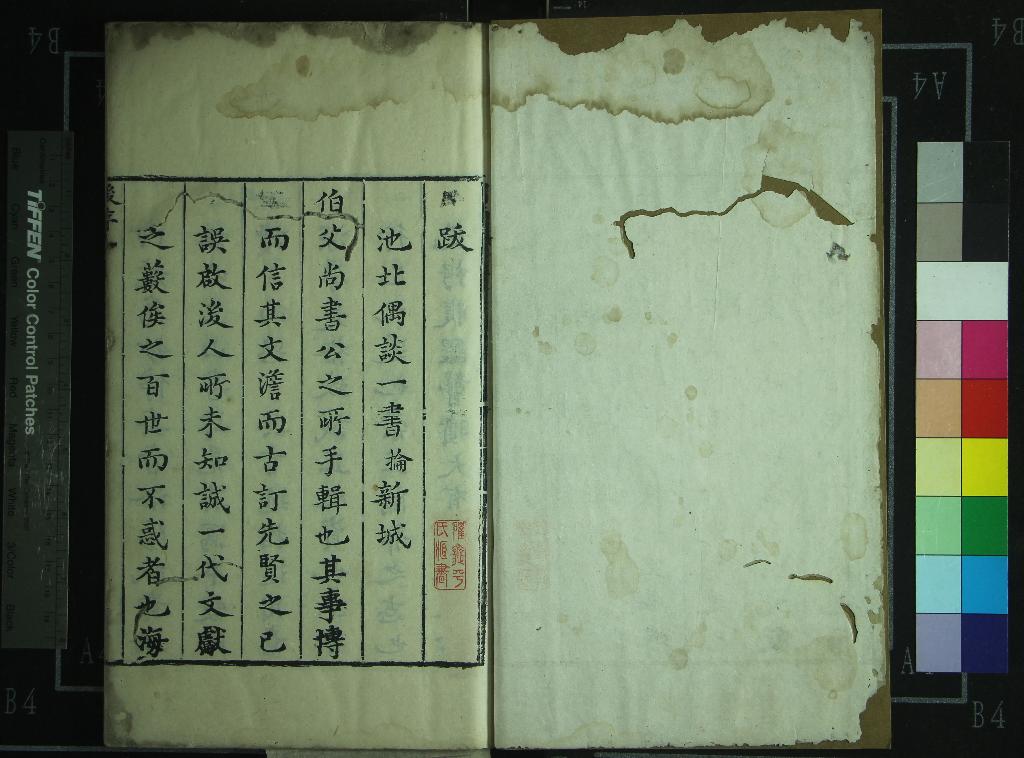 跋
池北偶談一書掄新城
伯父尚書公之所手輯也其事博
而信其文澹而古訂先賢之已
誤啟後人所未知誠一代文獻
之藪俟之百世而不惑者也海
TIFFEN Color Control Patches
Blue
Cyan
Green
Yellow
Red
Magenta
White
3/Color
Black
B4
B4
A4
B4
B4